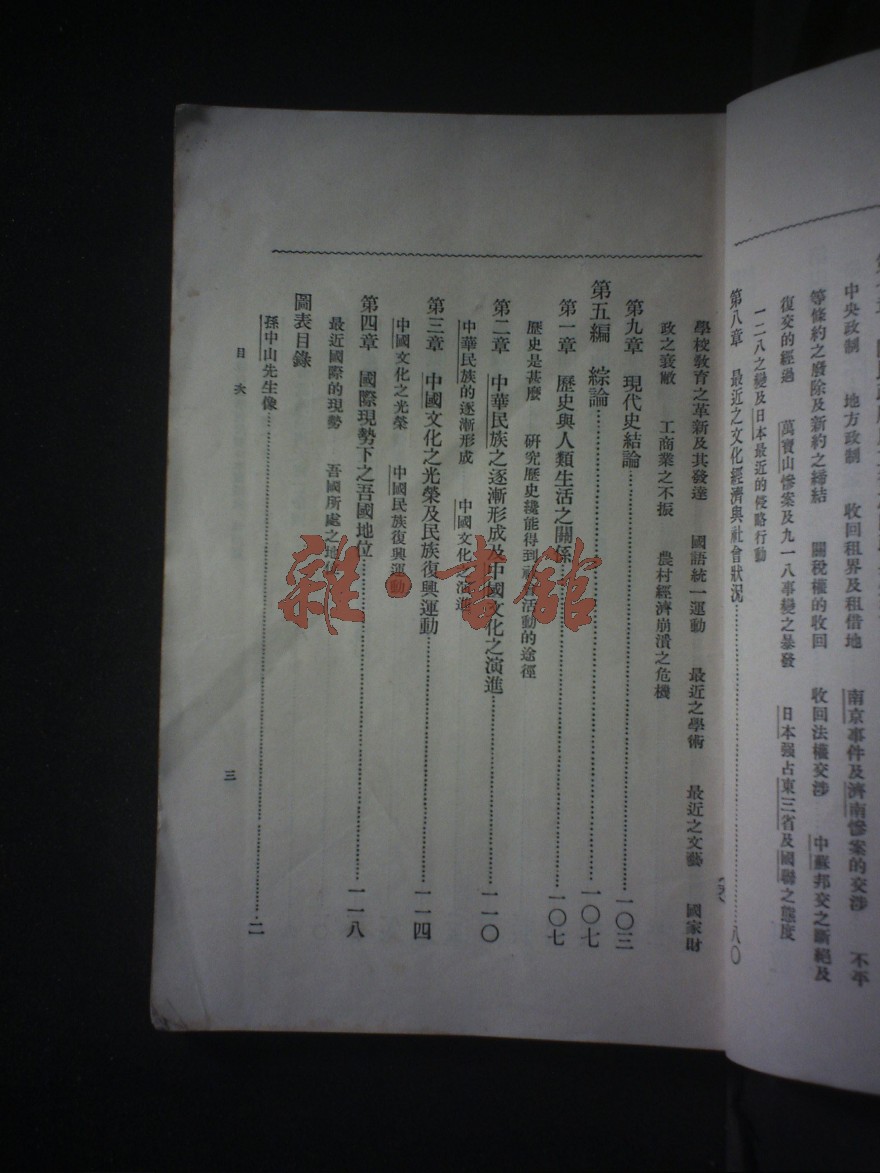 中央政制　地方政制　收回租界及租借地　南京事件及濟南慘案的交涉　不平
等條約之廢除及新約之締結　關稅權的收回　收回法權交涉　中蘇邦交之斷絕及
復交的經過　萬寶山慘案及九一八事變之暴發　日本强占東三省及國聯之態度
一二八之變及日本最近的侵略行動
第八章　最近之文化經濟與社會狀況…………八〇
學校教育之革新及其發達　國語統一運動　最近之學術　最近之文藝　國家財
政之衰敝　工商業之不振　農村經濟崩潰之危機
第九章　現代史結論…………一〇三
第五編　綜論…………一〇七
第一章　歷史與人類生活之關係…………一〇七
歷史是甚麼　研究歷史纔能得到社會活動的途徑
第二章　中華民族之逐漸形成及中國文化之演進…………一一〇
中華民族的逐漸形成　中國文化之演進
第三章　中國文化之光榮及民族復興運動…………一一四
中國文化之光榮　中國民族復興運動
第四章　國際現勢下之吾國地位…………一一八
最近國際的現勢　吾國所處之地位
圖表目錄
孫中山先生像…………二
目次
三
雜·書館